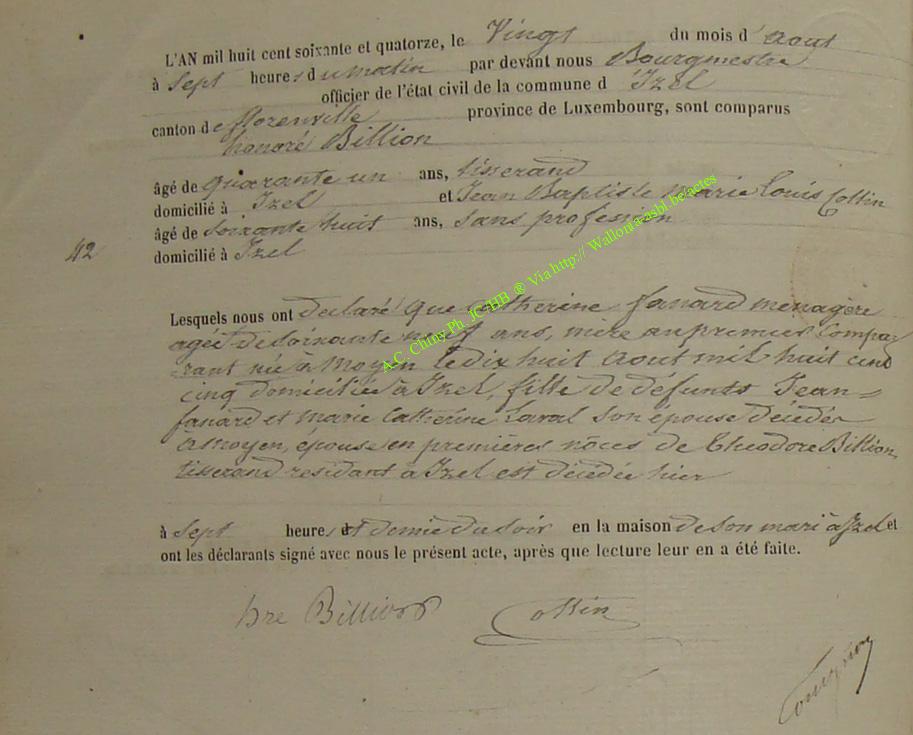 L'AN mil huit cent soixante et quatorze, le Vingt du mois d'Aout
à Sept heures du matin par devant nous Bourgmestre
officier de l'état civil de la commune d'Izel
canton de florenville province de Luxembourg, sont comparus
honoré Billion
âgé de quarante un ans, tisserand
domicilié à Izel et Jean Baptiste Marie Louis Collin
âgé de soixante huit ans, sans profession
42 domicilié à Izel
Lesquels nous ont déclaré que Catherine fanard menagère
agée de soixante neuf ans, mere au premier Compa-
rant née à Moyen le dix huit aout mil huit cent
cinq domiciliée à Izel, fille de défunts Jean
fanard et Marie Catherine Laval son épouse décédés
à Moyen, épouse en premières noces de Théodore Billion,
tisserand residant à Izel est décédée hier
à Sept heures et demie du soir en la maison de son mari à Izel et
ont les déclarants signé avec nous le présent acte, après que lecture leur en a été faite.
hre Billion Collin
A.C. Chiny Ph. JC HB ® Via http:// Wallonia-asbl.be/actes